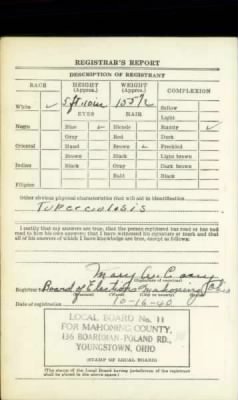 REGISTRAR'S REPORT
DESCRIPTION OF REGISTRANT
RACE
HEIGHT
(Approx.)
WEIGHT
(Approx.)
COMPLEXION
White ✓
5 ft 10 in
155 ½
Sallow
EYES
HAIR
Light
Negro
Blue ✓
Blonde
Ruddy ✓
Gray
Red
Dark
Oriental
Hazel
Brown ✓
Freckled
Brown
Black
Light brown
Indian
Black
Gray
Dark brown
Bald
Black
Filipino
Other obvious physical characteristics that will aid in identification
Tuberculosis
I certify that my answers are true; that the person registered has read or has had
read to him his own answers; that I have witnessed his signature or mark and that
all of his answers of which I have knowledge are true, except as follows:
Mary
(Signature of registrar)
Registrar for Board of Elections Mahoning Ohio
Date of registration 10-16-40
LOCAL BOARD No. 11
FOR MAHONING COUNTY,
136 BOARDMAN-POLAND RD.,
YOUNGSTOWN, OHIO
(STAMP OF LOCAL BOARD)
(The stamp of the Local Board having jurisdiction of the registrant
shall be placed in the above space.)